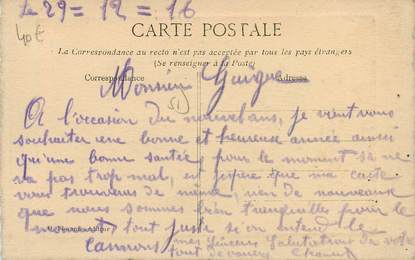 Le 29 = 12 = 16
40€
CARTE POSTALE
La Correspondance au recto n'est pas acceptée par tous les pays étrangers
(Se renseigner à la Poste)
Correspondance Adresse
Monsieur
51
A l'occasion du nouvel ans, je vient vous
souhaiter une bonne et heureuse année ainsi
qu'une bonne santée, pour le moment sa ne
va pas trop mal, en que ma carte
vous de même, rien de nouveaux
que nous sommes bien tranquilles pour le
moment tout juste si on entend le
cannons mes Salutations de votre
tout